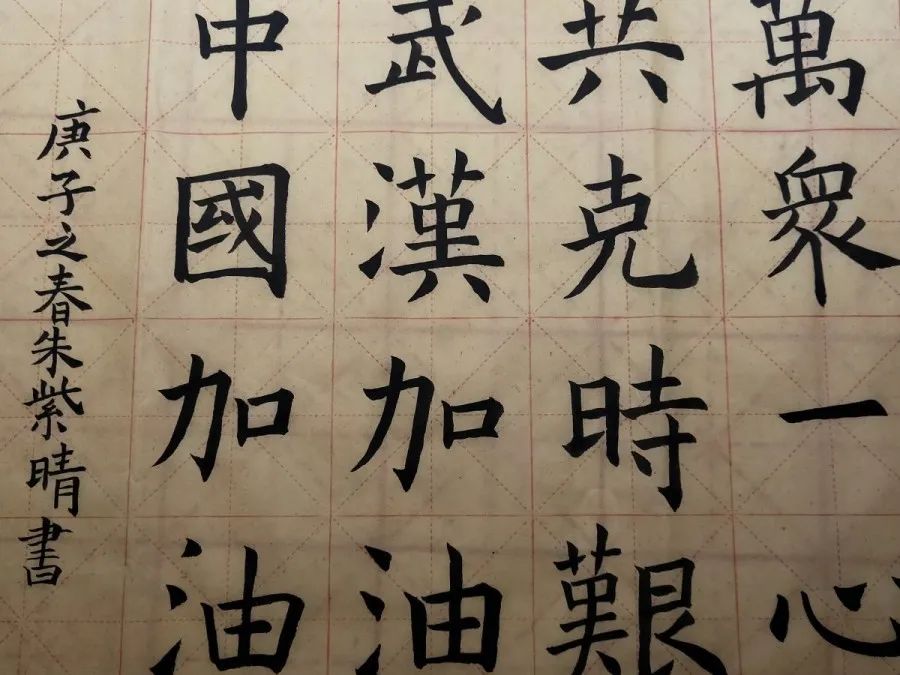 萬衆一心
共克時艱
武漢加油
中國加油
庚子之春朱紫晴書